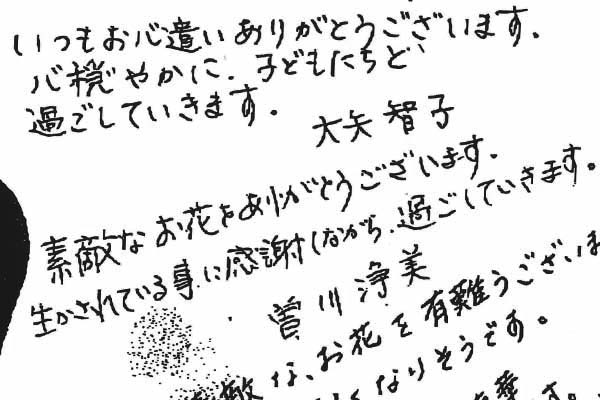 いつもお心遣いありがとうございます.
心穏やかに.子どもたちと
過ごしていきます.
大矢 智子
素敵なお花をありがとうございます.
生かされている事に感謝しながら.過ごしていきます。
曽川 浄美
敵な、お花を有難うございま
くなりそうです。